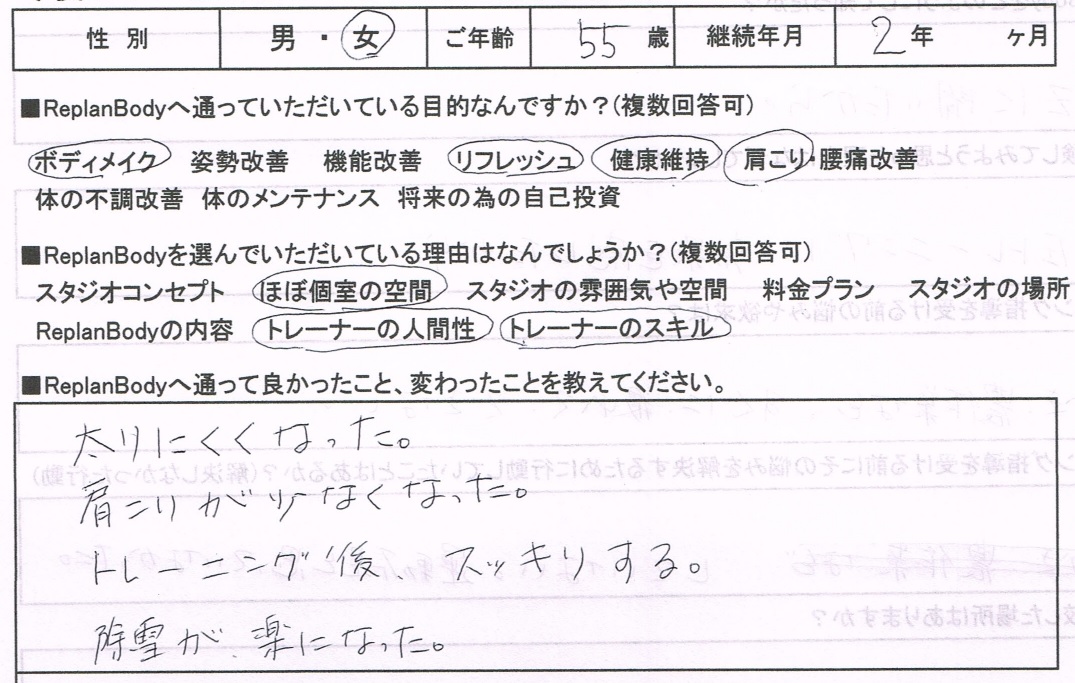 性 別 男 ・ 女 ご年齢 55 歳 継続年月 2 年 ヶ月
■ReplanBodyへ通っていただいている目的なんですか？(複数回答可)
ボディメイク 姿勢改善 機能改善 リフレッシュ 健康維持 肩こり 腰痛改善
体の不調改善 体のメンテナンス 将来の為の自己投資
■ReplanBodyを選んでいただいている理由はなんでしょうか？(複数回答可)
スタジオコンセプト ほぼ個室の空間 スタジオの雰囲気や空間 料金プラン スタジオの場所
ReplanBodyの内容 トレーナーの人間性 トレーナーのスキル
■ReplanBodyへ通って良かったこと、変わったことを教えてください。
太りにくくなった。
肩こりが少なくなった。
トレーニング後、スッキりする。
除雪が、楽になった。